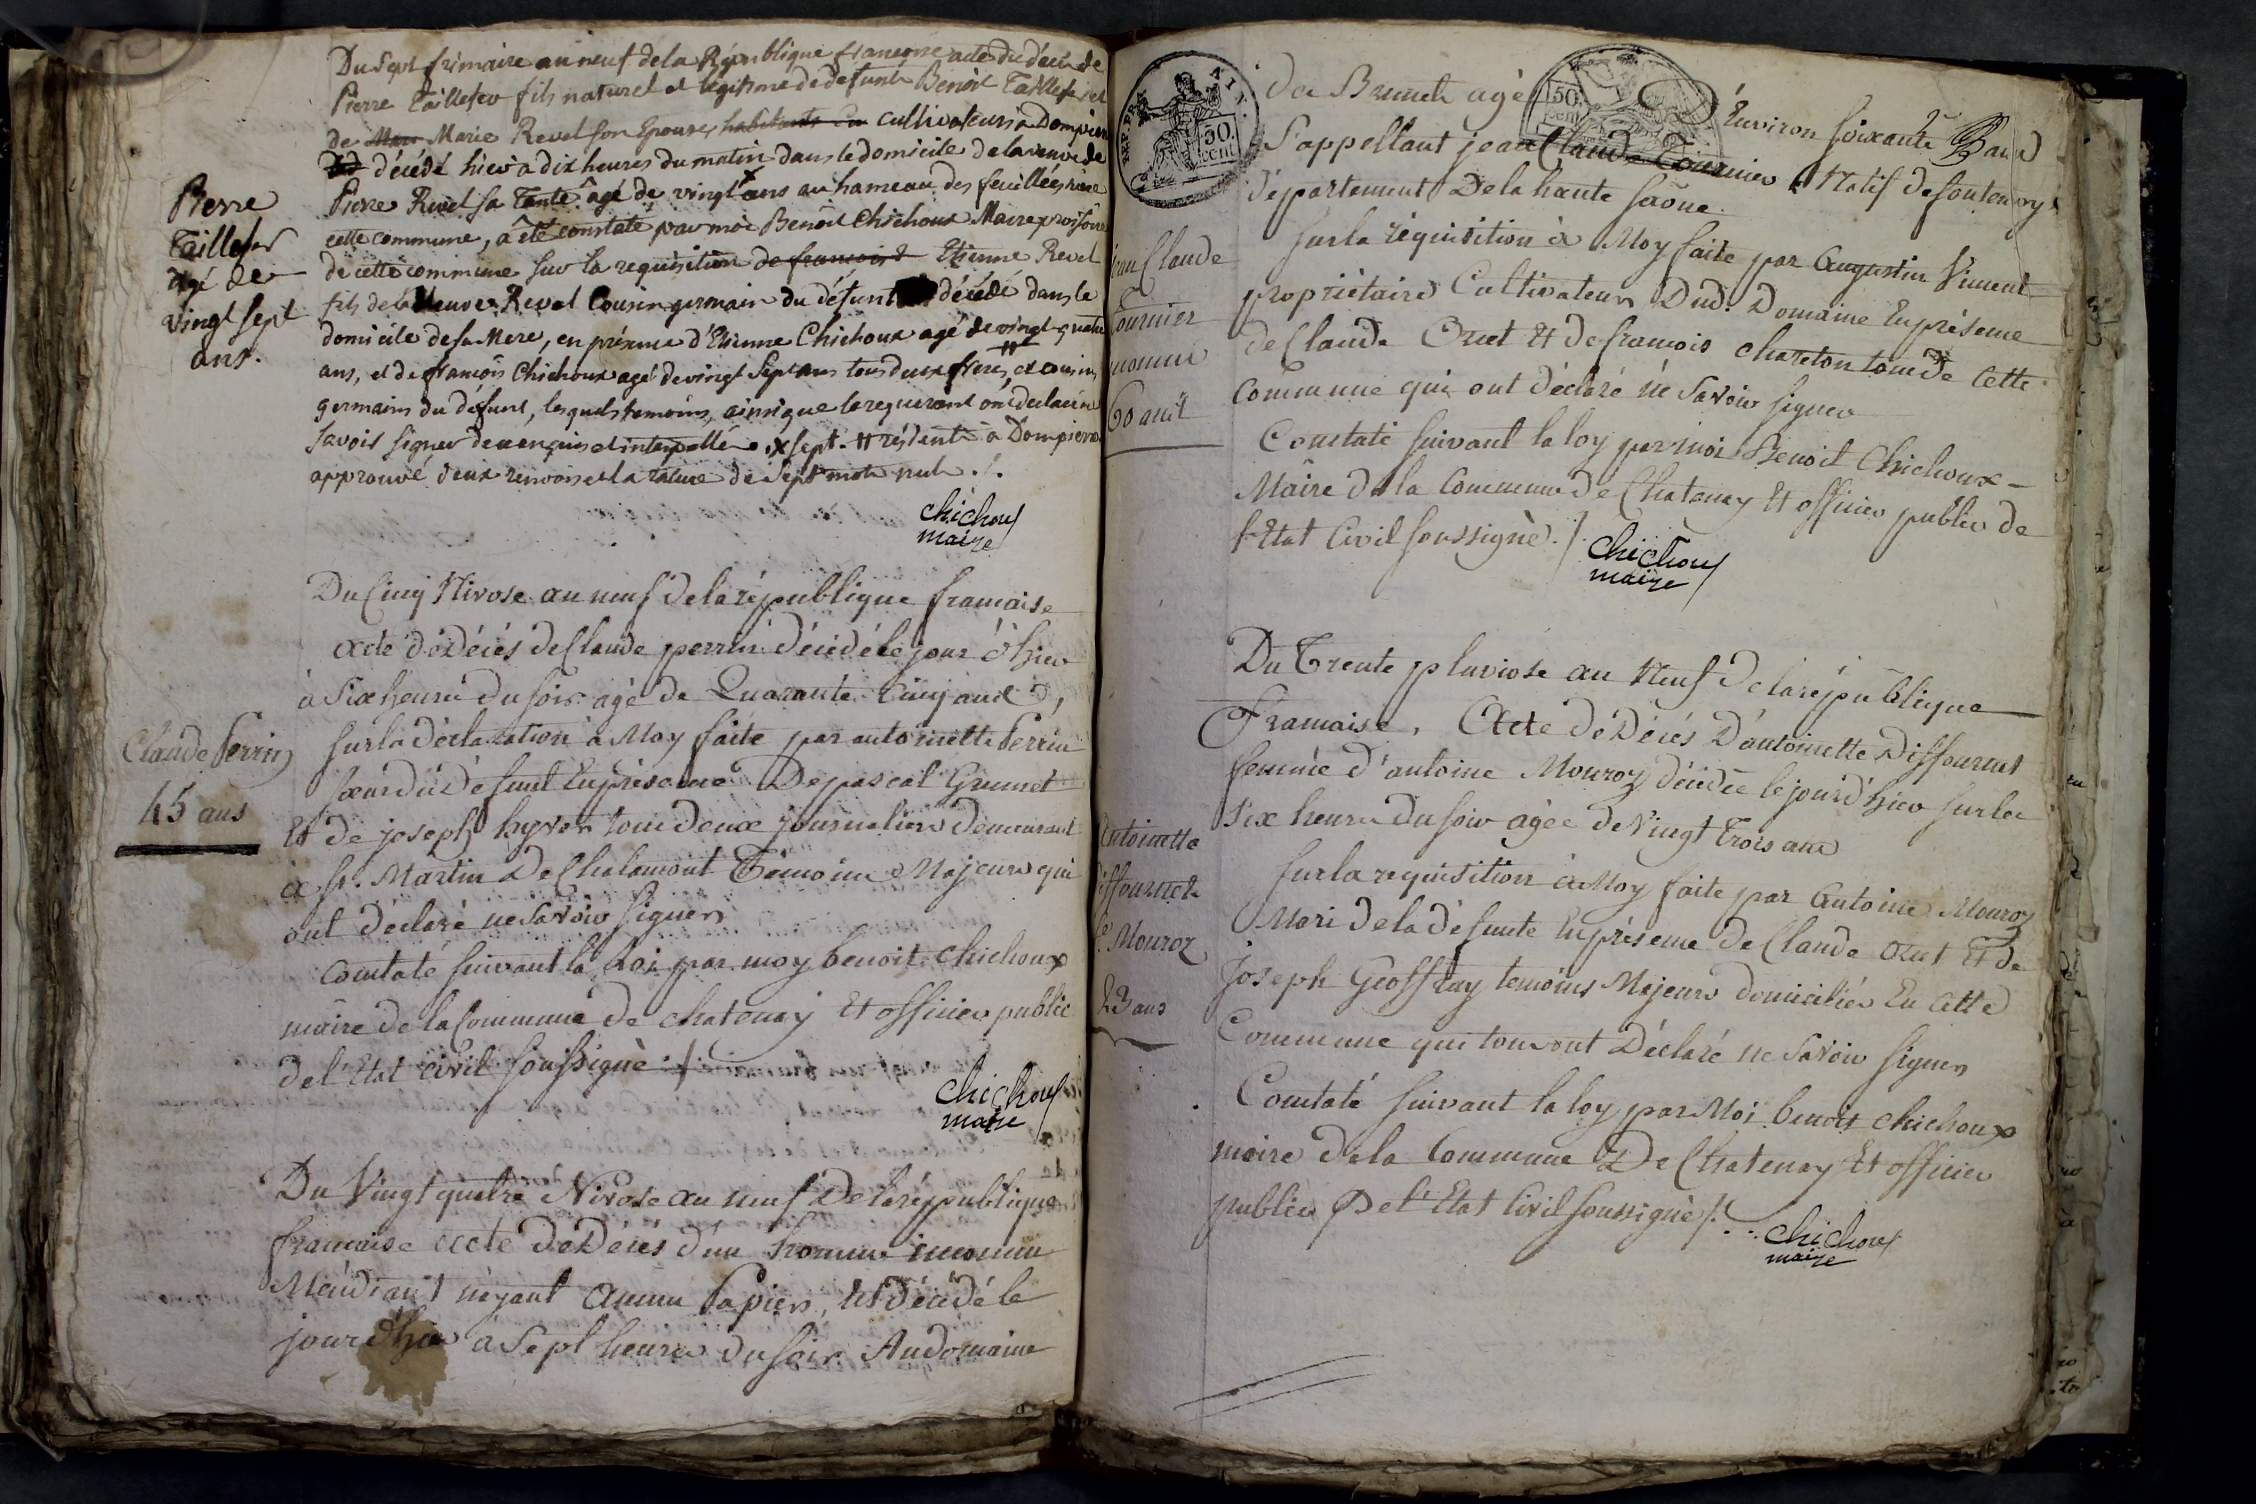 Du Sept frimaire an neuf de la République francoise acte du décès de
Pierre Taillefer fils naturel et légitime de defunts Benoit Taillefer et
de Marie Revel son Epouse, habitants cultivateurs à Dompierre
décédé hier à dix heures du matin dans le domicile de la veuve de
Pierre Revel sa Tante âgé de vingt x ans au hameau des feuillées rière
cette commune, a été constaté par moi Benoit Chichoux Maire provisoire
de cette commune sur la requisition de francois Etienne Revel
fils de la Veuve Revel Cousin germain du défunt décédé dans le
domicile de sa Mere, en présence d'Etienne Chichoux agé de vingt quatre
ans, et de françois Chichoux agé de vingt Sept ans tous deux freres, # et cousins
germains du défunt, lesquels temoins, ainsi que le requerant ont déclaré ne
Savoir signer de ce enquis et interpellé . x sept . # résidents à Dompierre
approuvé deux renvois et la rature de Sept mots nuls ./.
chichoux
maire
Pierre
Taillefer
agé de
vingt sept
ans.
Du Cinq Nivose an neuf de la république francaise
acte de Décés de Claude perrin décédé le jour d'hier
à Six heures du soir agé de Quarante Cinq ans,
sur la déclaration à Moy faite par antoinette Perrin
sœur du défunt En présence De pascal Grumet
Et de joseph hyvor tous deux journaliers demeurant
a st. Martin De Chalamont Témoins Majeurs qui
ont déclaré ne Savoir Signer
Constaté suivant la Loi par moy benoit Chichoux
maire de la Commune de chatenay Et officier public
de l'Etat civil soussigné ./.
chichoux
maire
Claude Perrin
45 ans
Du Vingt quatre Nivose an neuf De la république
francaise acte De Décés d'un homme inconnu
Mendiant n'ayant aucun Papiers, Est décédé le
jour d'hier à Sept heures du soir Au domaine
De Bruneth agé Environ soixante ans
S'appellant jean Claude Tournier Natif de fontenoy
département De la haute saône.
Sur la réquisition à Moy faite par Augustin Viment
propriétaire Cultivateur Dud. Domaine En présence
de Claude Oret Et de francois chareton tous de Cette
Commune qui ont déclaré ne Savoir signer
Constaté suivant la loy par moi Benoit Chichoux
Maire de la Commune de Chatenay Et officier public de
l'Etat Civil soussigné ./.
chichoux
maire
jean Claude
Tournier
nommé
60 ans
Du Trente pluviose an Neuf De la république
Francaise, Acte de Décés D'antoinette Diffournet
femme d'antoine Mouroz décédée le jour d'hier sur les
six heures du soir agée de Vingt Trois ans
Sur la requisition à Moy faite par Antoine Mouroz
Mari de la défunte En présence de Claude Oret Et de
Joseph Geoffray temoins Majeurs domiciliés En Cette
Commune qui tous ont Déclaré ne Savoir signer
Constaté suivant la loy par Moi benoit chichoux
maire de la Commune De Chatenay Et officier
public De l'Etat Civil soussigné ./.
chichoux
maire
Antoinette
Diffournet
fe Mouroz
23 ans
AIN.
50.
cent
50.
cent